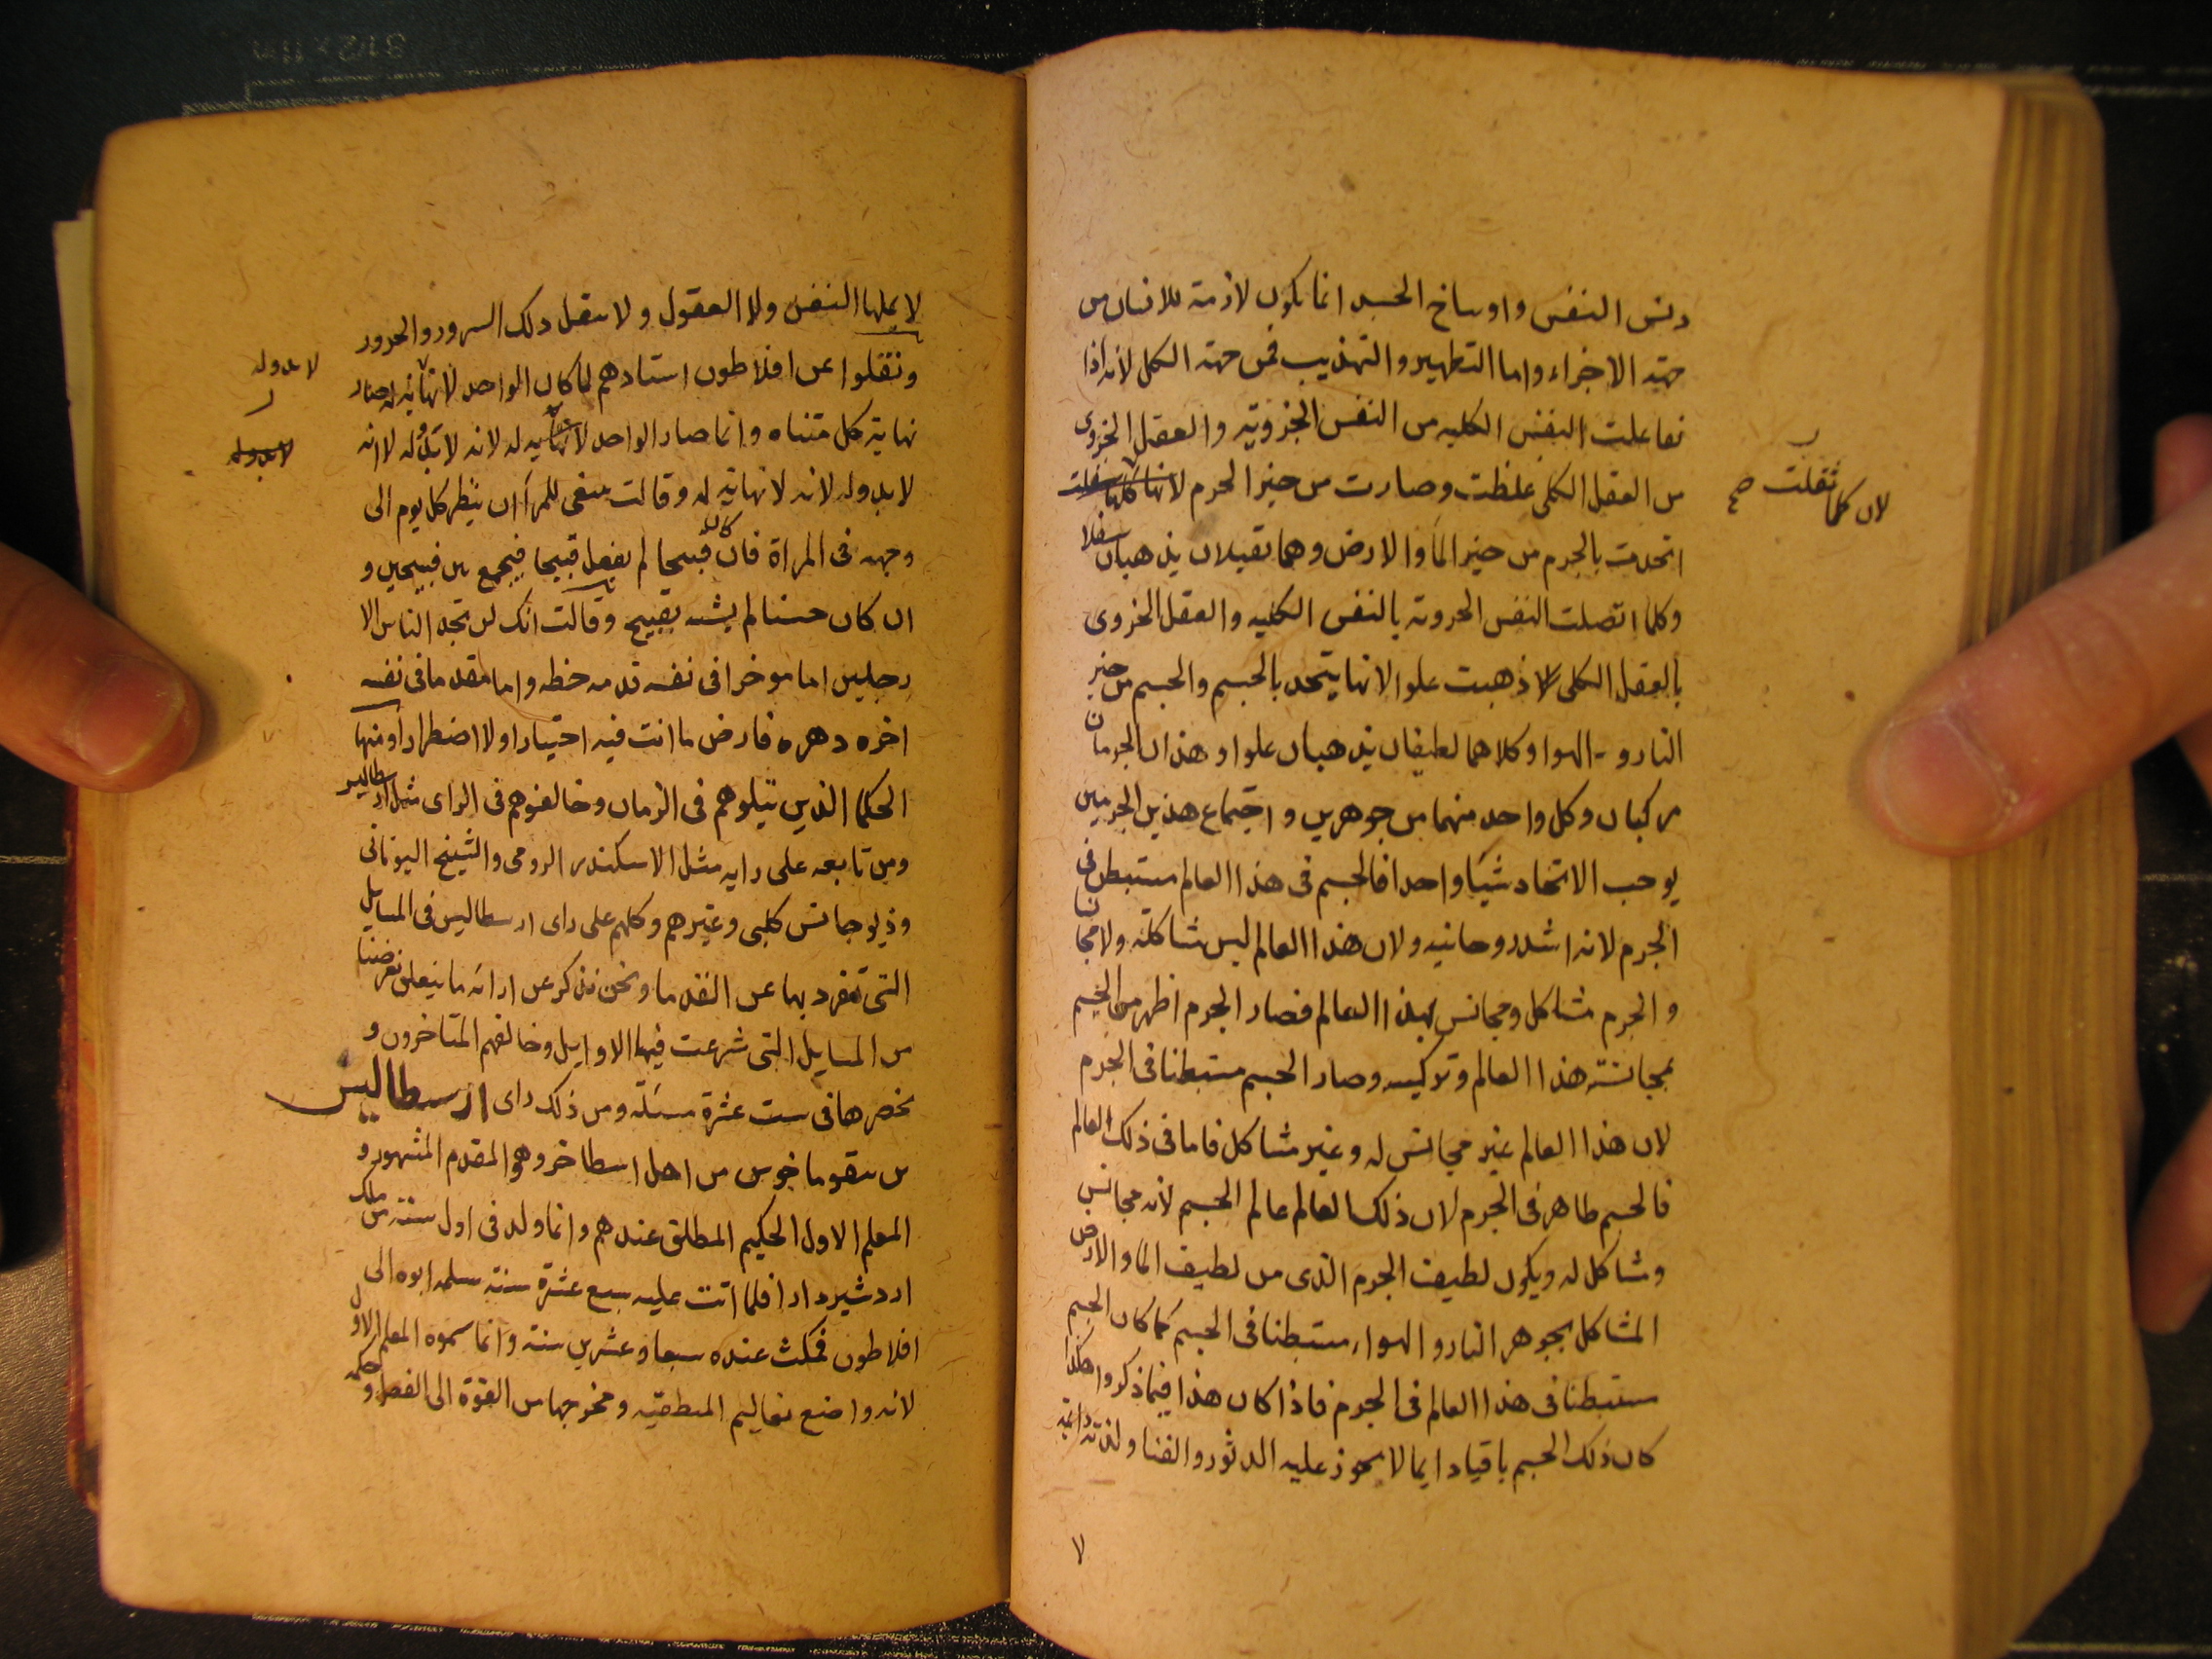 دنس النفس واوساخ الجسد انما يكون لازمة للانسان من
جهة الاجزاء واما التطهير والتهذيب فمن جهة الكل لانه اذا
تفاعلت النفس الكليه من النفس الجزويه والعقل الجزوى
من العقل الكلى غلظت وصارت من حيز الجرم لانها كلما سفلت
لان كلما ثقلت صح
اتحدت بالجرم من حيز الما والارض وهما ثقيلان يذهبان سفلا
وكلما اتصلت النفس الجزويه بالنفس الكليه والعقل الجزوى
بالعقل الكلى ذهبت علوا لانها يتحد بالجسم والجسم من حيز
النار والهوا وكلاهما لطيفان يذهبان علوا وهذان الجرمان
مركبان وكل واحد منهما من جوهرين واجتماع هذين الجرمين
يوجب الاتحاد شيًا واحدا فالجسم فى هذا العالم مستبطن فى
الجرم لانه اشد روحانيه ولان هذا العالم ليس مشاكلة ولا مجانسا
والجرم مشاكل ومجانس بهذا العالم فصار الجرم اظهر من الجسم
بمجانسته هذا العالم وتركيبه وصار الجسم مستبطنا فى الجرم
لان هذا العالم غير مجانس له وغير مشاكل فاما فى ذلك العالم
فالجسم ظاهر فى الجرم لان ذلك العالم عالم الجسم لانه مجانس
ومشاكل له ويكون لطيف الجرم الذى من لطيف الما والارض
المشاكل بجوهر النار والهواء مستبطنا فى الجسم كما كان الجسم
مستبطنا فى هذا العالم فى الجرم فاذا كان هذا فيما ذكروا هكذا
كان ذلك الجسم باقيا دايما لا يجوز عليه الدثور والفنا ولذته دايمة
لا يملها النفس ولا العقول ولا ينقل ذلك السرور والحرور
ونقلوا عن افلاطون استادهم لما كان الواحد لا نهاية له صار
لا بدو له
نهاية كل متناه وانما صار الواحد لا نهاية له لانه لا بدو له لا انه
لا بدو له
لا بدو له لانه لا نهاية له وقالت ينبغى للمرأ ان ينظر كل يوم الى
وجهه فى المراة فان كان قبيحا لم يفعل قبيحا فيجمع بين قبيحين و
ان كان حسنا لم يشنه بقبيح وقالت انك لن تجد الناس الا
رجلين اما موخرا فى نفسه قدمه حظه واما مقدما فى نفسه
اخره دهره فارض ما انت فيه اختيارا ولا اضطرارا ومنها
الحكما الذين تيلوهم فى الزمان وخالفوهم فى الراى مثل ارسطاليس
ومن تابعه على رايه مثل الاسكندر الرومى والشيخ اليونانى
وذيوجانس كلبى وغيرهم وكلهم على راى ارسطاليس فى المسايل
التى تفرد بها عن القدما ونحن نذكر عن ارائه ما يتعلق بغرضنا
من المسايل التى شرعت فيها الاوايل وخالفهم المتاخرون و
نحصرها فى ست عشرة مسئلة ومن ذلك راى ارسطاليس
بن نيقوماخوس من اهل اسطاخر وهو المقدم المشهور و
المعلم الاول الحكيم المطلق عندهم وانما ولد فى اول سنة من ملك
اردشير دارا فلما اتت عليه سبع عشرة سنة سلمه ابوه الى
افلاطون فمكث عنده سبعا وعشرين سنة وانما سموه المعلم الاول
لانه واضع تعاليم المنطقيه ومخرجها من القوة الى الفعل وحكمه